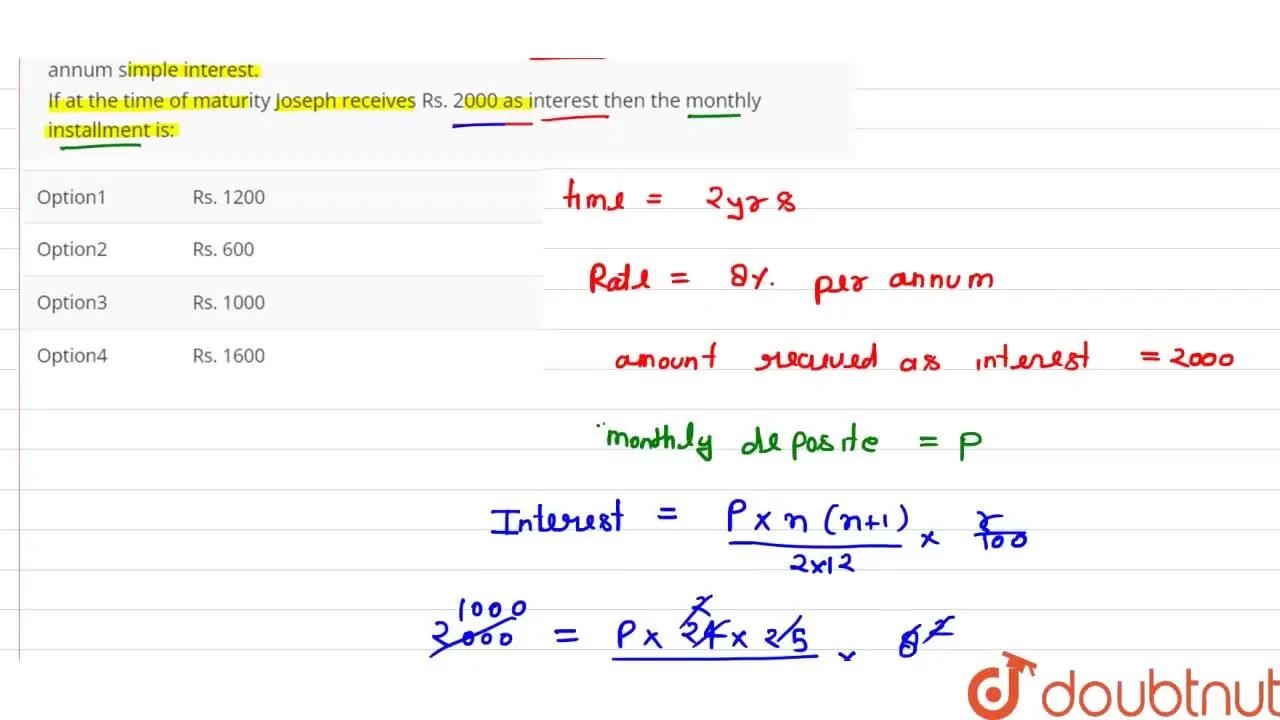 annum simple interest.
If at the time of maturity Joseph receives Rs. 2000 as interest then the monthly
installment is:
Option1 Rs. 1200
Option2 Rs. 600
Option3 Rs. 1000
Option4 Rs. 1600
time = 2yrs
Rate = 8%. per annum
amount recieved as interest = 2000
monthly deposite = P
Interest = P x n (n+1) / 2x12 x r/100
1000 2
2000 = P x 24 x 25 x 8 2
doubtnut